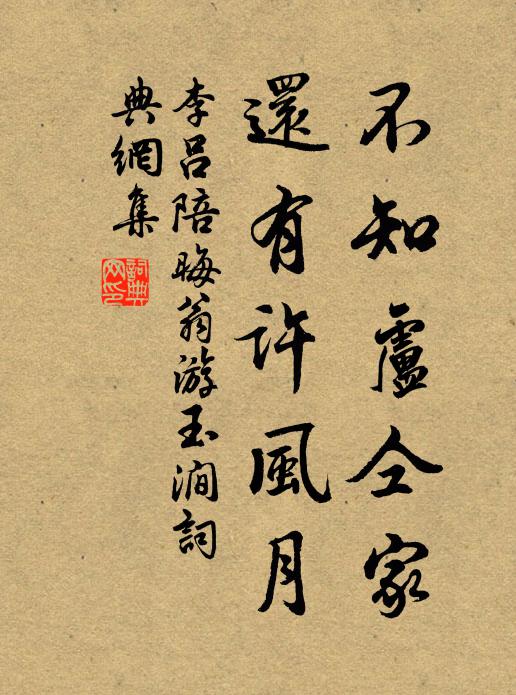 不知盧仝家
還有許風月
李呂陪晦翁游玉澗詞
典網集
詞典
网印